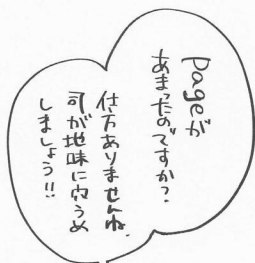 pageが
あまったのですか?
仕方ありませんね、
司が地味に穴うめ
しましょう!!